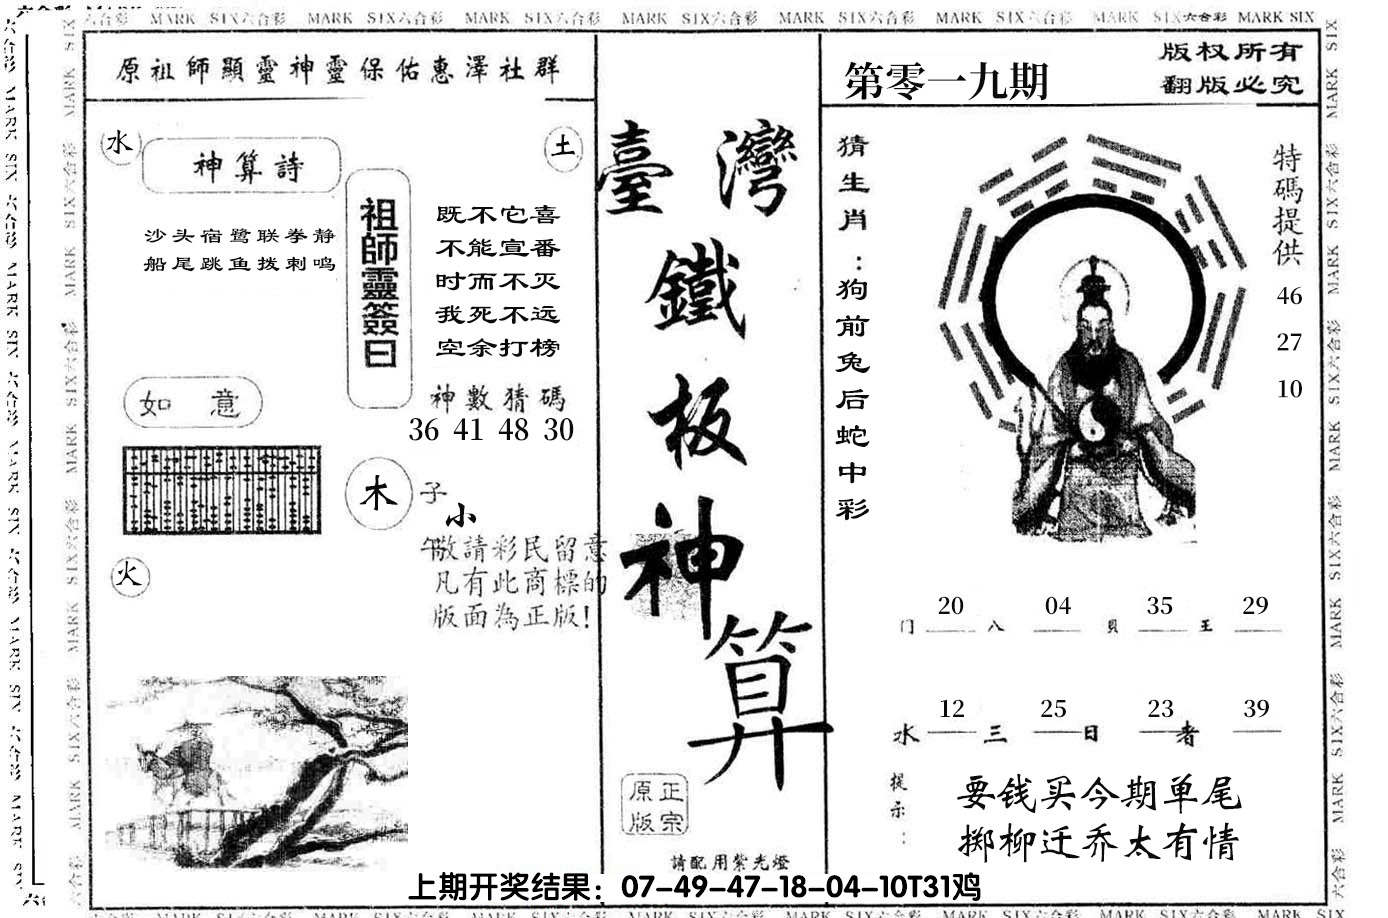 六合彩 MARK SIX六合彩 MARK SIX六合彩 MARK SIX六合彩 MARK SIX六合彩 MARK SIX六合彩 MARK SIX六合彩 MARK SIX六合彩 MARK SIX
原祖師顯靈神靈保佑惠澤社群
水
土
神算詩
沙头宿鹭联拳静
船尾跳鱼拨刺鸣
祖師靈簽曰
既不它喜
不能宣番
时而不灭
我死不远
空余打榜
神數猜碼
36 41 48 30
如 意
木
子
小
午
火
敬請彩民留意
凡有此商標的
版面為正版!
臺灣
鐵
板
神
算
正宗
原版
請配用紫光燈
第零一九期
版权所有
翻版必究
猜生肖:狗前兔后蛇中彩
特碼提供
46
27
10
20 04 35 29
门 八 贝 王
12 25 23 39
水 三 日 者
提示:
要钱买今期单尾
掷柳迁乔太有情
上期开奖结果：07-49-47-18-04-10T31鸡